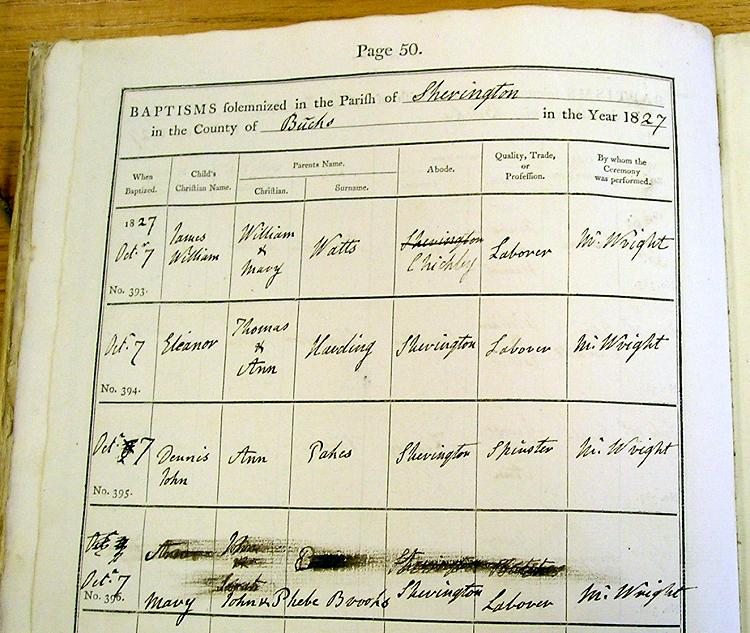 Page 50.
BAPTISMS solemnized in the Parish of Sherington
in the County of Bucks in the Year 1827
When Baptized. Child's Christian Name. Parents Name. Christian. Surname. Abode. Quality, Trade, or Profession. By whom the Ceremony was performed.
1827
Octr 7 James William William & Mary Watts Sherington Chichley Labourer Mr. Wright
No. 393.
Octr 7 Eleanor Thomas & Ann Harding Sherington Labourer Mr. Wright
No. 394.
Octr 7 Dennis John Ann Pakes Sherington Spinster Mr. Wright
No. 395.
Octr 7 Mary John & Phebe Brooks Sherington Labourer Mr. Wright
No. 396.